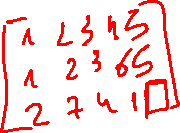 1 2 3 4 5
1 2 3 6 5
2 7 4 1 □